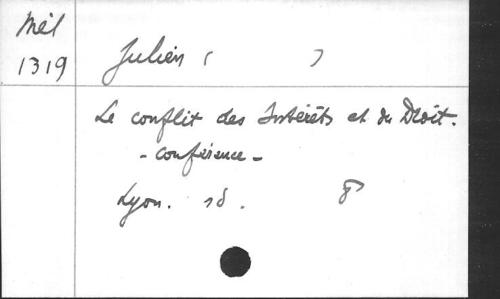 Mél
1319
Julien ( )
Le conflit des Intérêts et du Droit.
- conférence -
Lyon. sd. 8°